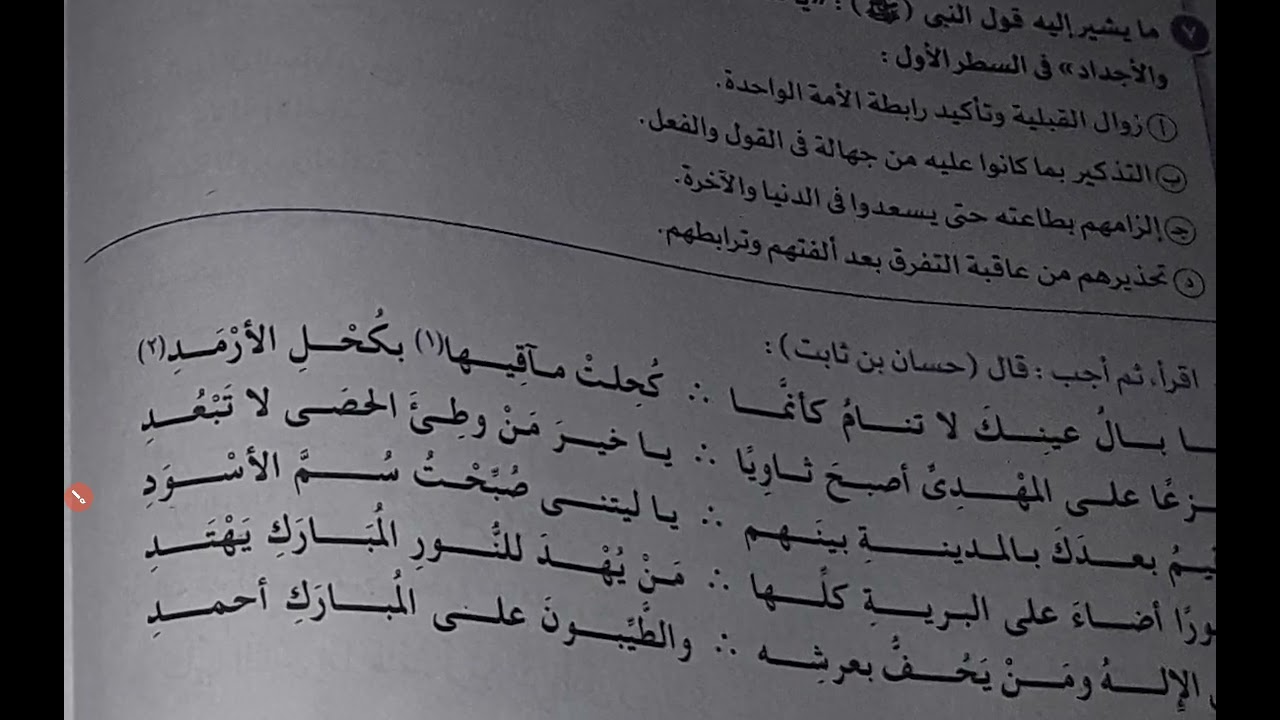 ٧ ما يشير إليه قول النبى (ﷺ) :
والأجداد» فى السطر الأول :
أ زوال القبلية وتأكيد رابطة الأمة الواحدة.
ب التذكير بما كانوا عليه من جهالة فى القول والفعل.
ج إلزامهم بطاعته حتى يسعدوا فى الدنيا والآخرة.
د تحذيرهم من عاقبة التفرق بعد ألفتهم وترابطهم.
اقرأ، ثم أجب : قال (حسان بن ثابت) :
ـا بـالُ عينِـكَ لا تنـامُ كأنَّمـا ∴ كُحِلتْ مـآقِيـها(١) بكُحْـلِ الأرْمَـدِ(٢)
ـزعًا علـى المهْـدِىِّ أصبحَ ثـاوِيًا ∴ يـا خيـرَ مَنْ وطِـئَ الحَصَـى لا تَبْعُـدِ
ـيمُ بعـدَكَ بالمدينـةِ بينَـهم ∴ يـا ليتنـى صُبِّحْـتُ سُـمَّ الأسْـوَدِ
ـورًا أضـاءَ علـى البريـةِ كلِّـها ∴ مَـنْ يُهْـدَ للنُّـورِ المُبَـارَكِ يَهْتَـدِ
الإلـهُ ومَـنْ يَحُـفُّ بعرشِـه ∴ والطَّيِّبـونَ علـى المُبـارَكِ أحمـدِ